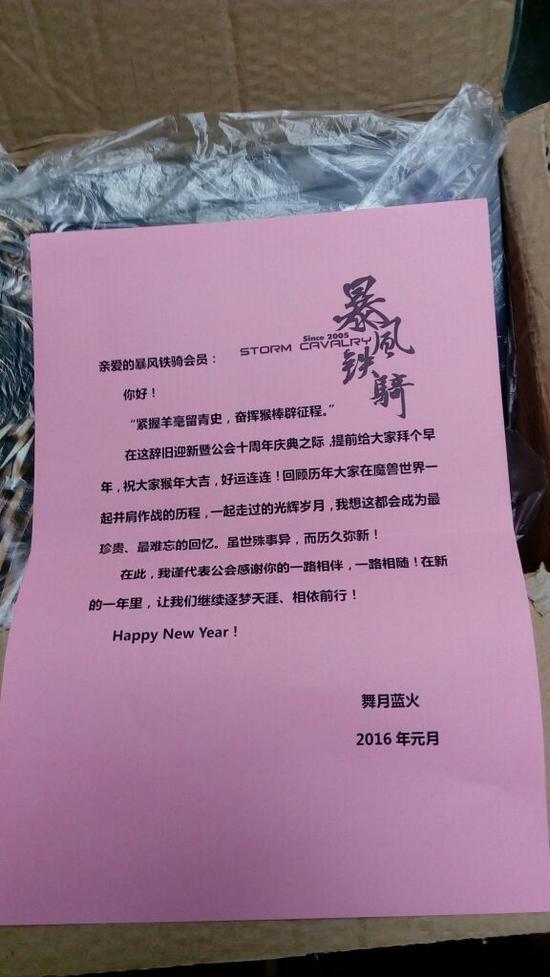 暴風铁騎
Since 2005
STORM CAVALRY
亲爱的暴风铁骑会员：
你好！
“紧握羊毫留青史，奋挥猴棒辟征程。”
在这辞旧迎新暨公会十周年庆典之际，提前给大家拜个早
年，祝大家猴年大吉，好运连连！回顾历年大家在魔兽世界一
起并肩作战的历程，一起走过的光辉岁月，我想这都会成为最
珍贵、最难忘的回忆。虽世殊事异，而历久弥新！
在此，我谨代表公会感谢你的一路相伴，一路相随！在新
的一年里，让我们继续逐梦天涯、相依前行！
Happy New Year！
舞月蓝火
2016 年元月